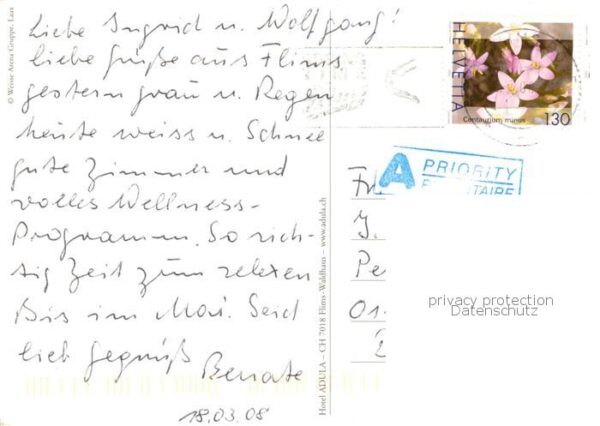 Liebe Ingrid u. Wolfgang!
liebe Grüße aus Flims
gestern grau u. Regen
heute weiss u. Schnee
gute Zimmer und
volles Wellness-
Programm. So rich-
tig Zeit zum relexen
Bis im Mai. Seid
lieb gegrüß Renate
18.03.08
© Weisse Arena Gruppe, Laax
Hotel ADULA – CH 7018 Flims-Waldhaus – www.adula.ch
HELVETIA
Centaurium minus
130
A PRIORITY
Pe
01.
privacy protection
Datenschutz